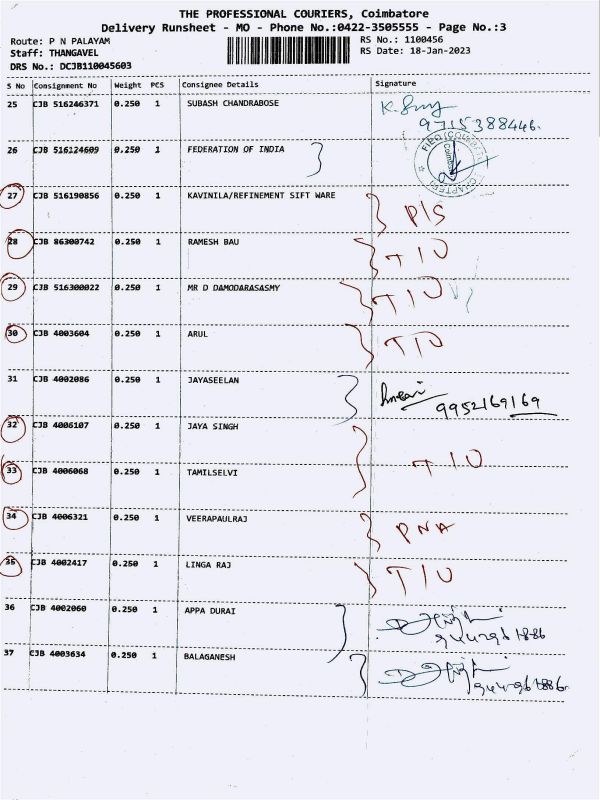 THE PROFESSIONAL COURIERS, Coimbatore
Delivery Runsheet - MO - Phone No.:0422-3505555 - Page No.:3
Route: P N PALAYAM RS No.: 1100456
Staff: THANGAVEL RS Date: 18-Jan-2023
DRS No.: DCJB110045603
S No Consignment No Weight PCS Consignee Details Signature
25 CJB 516246371 0.250 1 SUBASH CHANDRABOSE
9715388446.
26 CJB 516124609 0.250 1 FEDERATION OF INDIA
27 CJB 516190856 0.250 1 KAVINILA/REFINEMENT SIFT WARE P/S
28 CJB 86300742 0.250 1 RAMESH BAU T/O
29 CJB 516300022 0.250 1 MR D DAMODARASASMY T/O
30 CJB 4003604 0.250 1 ARUL T/O
31 CJB 4002086 0.250 1 JAYASEELAN
9952169169
32 CJB 4006107 0.250 1 JAYA SINGH
T/O
33 CJB 4006068 0.250 1 TAMILSELVI
34 CJB 4006321 0.250 1 VEERAPAULRAJ PNA
35 CJB 4002417 0.250 1 LINGA RAJ T/O
36 CJB 4002060 0.250 1 APPA DURAI
37 CJB 4003634 0.250 1 BALAGANESH